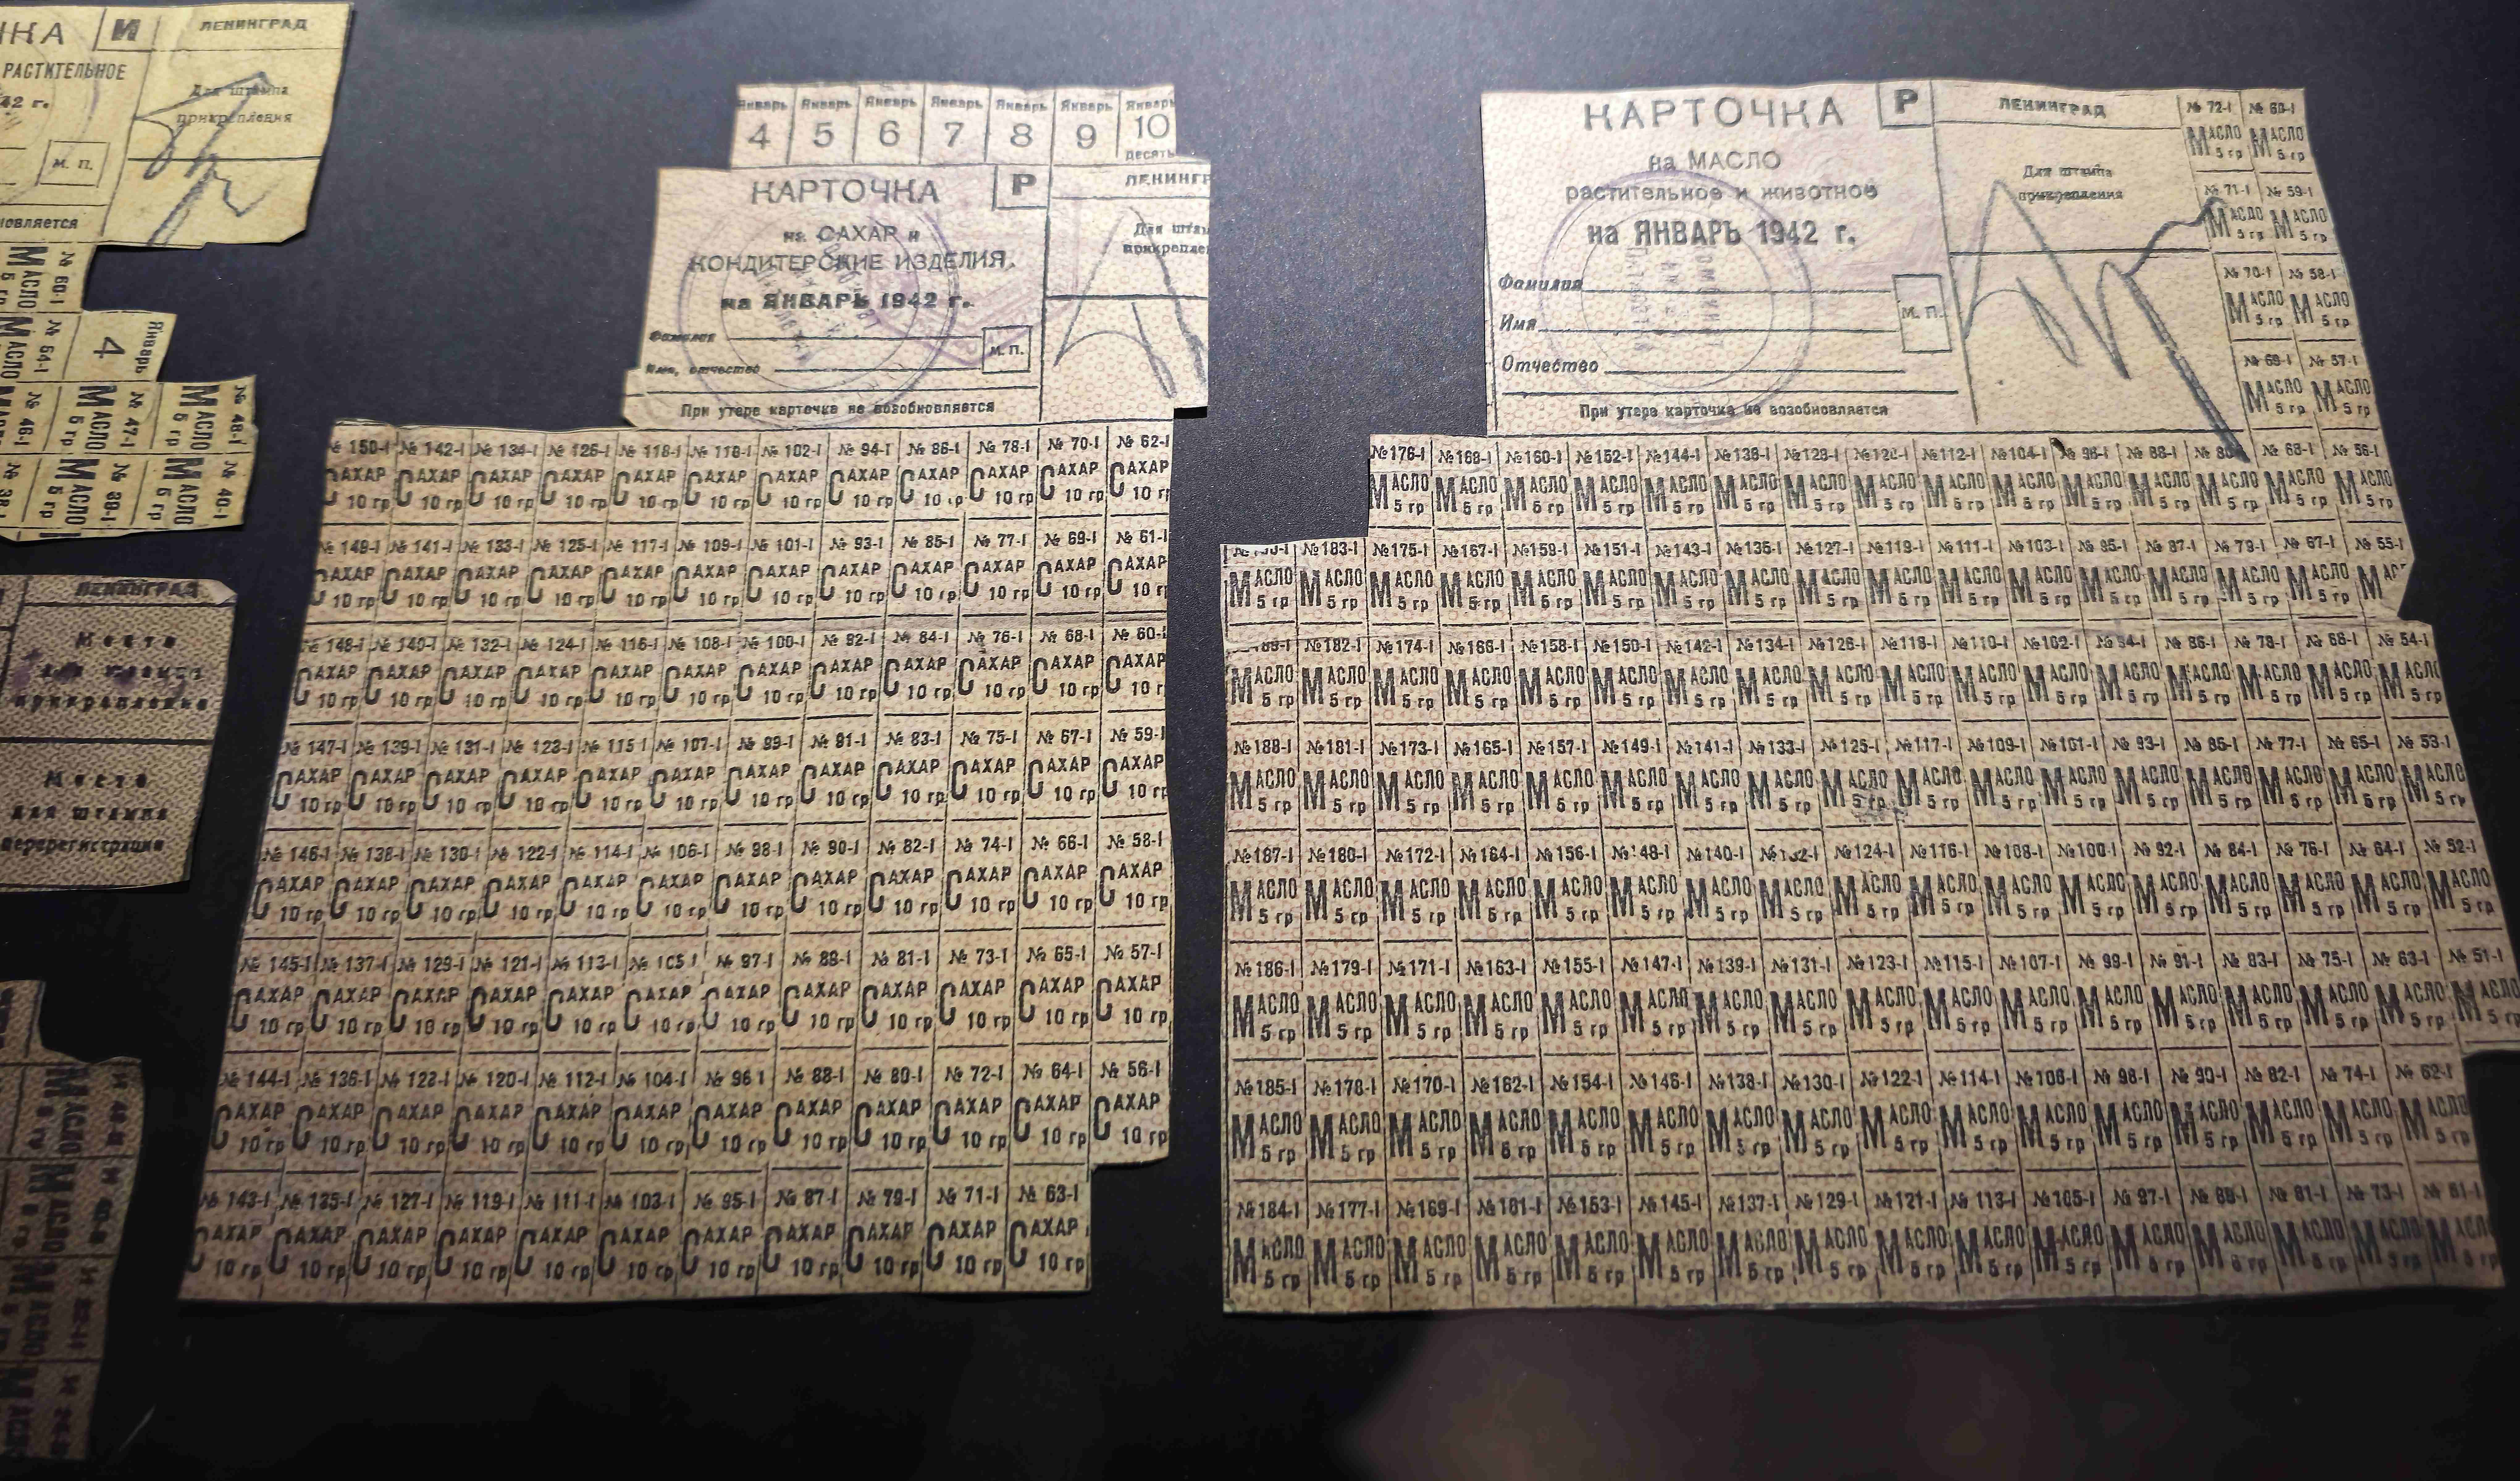 КА И ЛЕНИНГРАД
РАСТИТЕЛЬНОЕ
Для штампа
прикрепления
42 г.
М. П.
новляется
№ 60-I
МАСЛО
5 гр
№ 54-I
МАСЛО
Январь
4
№ 48-I
МАСЛО
5 гр
№ 47-I
МАСЛО
5 гр
№ 46-I
№ 40-I
МАСЛО
5 гр
№ 39-I
МАСЛО
5 гр
ЛЕНИНГРАД
Место
для штампа
прикрепления
Место
для штампа
перерегистрации
Январь Январь Январь Январь Январь Январь Январь
4 5 6 7 8 9 10
десять
КАРТОЧКА Р ЛЕНИНГР
на САХАР и
КОНДИТЕРСКИЕ ИЗДЕЛИЯ.
на ЯНВАРЬ 1942 г.
Для штам
прикреплен
Фамилия
М. П.
Имя, отчество
При утере карточка не возобновляется
№ 150-I № 142-I № 134-I № 126-I № 118-I № 110-I № 102-I № 94-I № 86-I № 78-I № 70-I № 62-I
САХАР САХАР САХАР САХАР САХАР САХАР САХАР САХАР САХАР САХАР САХАР САХАР
10 гр 10 гр 10 гр 10 гр 10 гр 10 гр 10 гр 10 гр 10 гр 10 гр 10 гр 10 гр
№ 149-I № 141-I № 133-I № 125-I № 117-I № 109-I № 101-I № 93-I № 85-I № 77-I № 69-I № 61-I
САХАР САХАР САХАР САХАР САХАР САХАР САХАР САХАР САХАР САХАР САХАР САХАР
10 гр 10 гр 10 гр 10 гр 10 гр 10 гр 10 гр 10 гр 10 гр 10 гр 10 гр 10 гр
№ 148-I № 140-I № 132-I № 124-I № 116-I № 108-I № 100-I № 92-I № 84-I № 76-I № 68-I № 60-I
САХАР САХАР САХАР САХАР САХАР САХАР САХАР САХАР САХАР САХАР САХАР САХАР
10 гр 10 гр 10 гр 10 гр 10 гр 10 гр 10 гр 10 гр 10 гр 10 гр 10 гр 10 гр
№ 147-I № 139-I № 131-I № 123-I № 115 I № 107-I № 99-I № 91-I № 83-I № 75-I № 67-I № 59-I
САХАР САХАР САХАР САХАР САХАР САХАР САХАР САХАР САХАР САХАР САХАР САХАР
10 гр 10 гр 10 гр 10 гр 10 гр 10 гр 10 гр 10 гр 10 гр 10 гр 10 гр 10 гр
№ 146-I № 138-I № 130-I № 122-I № 114-I № 106-I № 98-I № 90-I № 82-I № 74-I № 66-I № 58-I
САХАР САХАР САХАР САХАР САХАР САХАР САХАР САХАР САХАР САХАР САХАР САХАР
10 гр 10 гр 10 гр 10 гр 10 гр 10 гр 10 гр 10 гр 10 гр 10 гр 10 гр 10 гр
№ 145-I № 137-I № 129-I № 121-I № 113-I № 105 I № 97-I № 89-I № 81-I № 73-I № 65-I № 57-I
САХАР САХАР САХАР САХАР САХАР САХАР САХАР САХАР САХАР САХАР САХАР САХАР
10 гр 10 гр 10 гр 10 гр 10 гр 10 гр 10 гр 10 гр 10 гр 10 гр 10 гр 10 гр
№ 144-I № 136-I № 128-I № 120-I № 112-I № 104-I № 96 I № 88-I № 80-I № 72-I № 64-I № 56-I
САХАР САХАР САХАР САХАР САХАР САХАР САХАР САХАР САХАР САХАР САХАР САХАР
10 гр 10 гр 10 гр 10 гр 10 гр 10 гр 10 гр 10 гр 10 гр 10 гр 10 гр 10 гр
№ 143-I № 135-I № 127-I № 119-I № 111-I № 103-I № 95-I № 87-I № 79-I № 71-I № 63-I
САХАР САХАР САХАР САХАР САХАР САХАР САХАР САХАР САХАР САХАР САХАР
10 гр 10 гр 10 гр 10 гр 10 гр 10 гр 10 гр 10 гр 10 гр 10 гр 10 гр
КАРТОЧКА Р ЛЕНИНГРАД
на МАСЛО
растительное и животное
на ЯНВАРЬ 1942 г.
Для штампа
прикрепления
Фамилия
Имя
М. П.
Отчество
При утере карточка не возобновляется
№ 72-I № 60-I
МАСЛО МАСЛО
5 гр 5 гр
№ 71-I № 59-I
МАСЛО МАСЛО
5 гр 5 гр
№ 70-I № 58-I
МАСЛО МАСЛО
5 гр 5 гр
№ 69-I № 57-I
МАСЛО МАСЛО
5 гр 5 гр
№176-I №168-I №160-I №152-I №144-I №136-I №128-I №120-I №112-I №104-I № 96-I № 88-I № 80 № 68-I № 56-I
МАСЛО МАСЛО МАСЛО МАСЛО МАСЛО МАСЛО МАСЛО МАСЛО МАСЛО МАСЛО МАСЛО МАСЛО МАСЛО МАСЛО МАСЛО
5 гр 5 гр 5 гр 5 гр 5 гр 5 гр 5 гр 5 гр 5 гр 5 гр 5 гр 5 гр 5 гр 5 гр 5 гр
№183-I №175-I №167-I №159-I №151-I №143-I №135-I №127-I №119-I №111-I №103-I № 95-I № 87-I № 79-I № 67-I № 55-I
МАСЛО МАСЛО МАСЛО МАСЛО МАСЛО МАСЛО МАСЛО МАСЛО МАСЛО МАСЛО МАСЛО МАСЛО МАСЛО МАСЛО МАСЛО МАСЛО МАС
5 гр 5 гр 5 гр 5 гр 5 гр 5 гр 5 гр 5 гр 5 гр 5 гр 5 гр 5 гр 5 гр 5 гр 5 гр 5 гр
№182-I №174-I №166-I №158-I №150-I №142-I №134-I №126-I №118-I №110-I №102-I № 94-I № 86-I № 78-I № 66-I № 54-I
МАСЛО МАСЛО МАСЛО МАСЛО МАСЛО МАСЛО МАСЛО МАСЛО МАСЛО МАСЛО МАСЛО МАСЛО МАСЛО МАСЛО МАСЛО МАСЛО МАСЛО
5 гр 5 гр 5 гр 5 гр 5 гр 5 гр 5 гр 5 гр 5 гр 5 гр 5 гр 5 гр 5 гр 5 гр 5 гр 5 гр 5 гр
№188-I №181-I №173-I №165-I №157-I №149-I №141-I №133-I №125-I №117-I №109-I №101-I № 93-I № 85-I № 77-I № 65-I № 53-I
МАСЛО МАСЛО МАСЛО МАСЛО МАСЛО МАСЛО МАСЛО МАСЛО МАСЛО МАСЛО МАСЛО МАСЛО МАСЛО МАСЛО МАСЛО МАСЛО МАСЛО
5 гр 5 гр 5 гр 5 гр 5 гр 5 гр 5 гр 5 гр 5 гр 5 гр 5 гр 5 гр 5 гр 5 гр 5 гр 5 гр 5 гр
№187-I №180-I №172-I №164-I №156-I №148-I №140-I №132-I №124-I №116-I №108-I №100-I № 92-I № 84-I № 76-I № 64-I № 52-I
МАСЛО МАСЛО МАСЛО МАСЛО МАСЛО МАСЛО МАСЛО МАСЛО МАСЛО МАСЛО МАСЛО МАСЛО МАСЛО МАСЛО МАСЛО МАСЛО МАСЛО
5 гр 5 гр 5 гр 5 гр 5 гр 5 гр 5 гр 5 гр 5 гр 5 гр 5 гр 5 гр 5 гр 5 гр 5 гр 5 гр 5 гр
№186-I №179-I №171-I №163-I №155-I №147-I №139-I №131-I №123-I №115-I №107-I № 99-I № 91-I № 83-I № 75-I № 63-I № 51-I
МАСЛО МАСЛО МАСЛО МАСЛО МАСЛО МАСЛО МАСЛО МАСЛО МАСЛО МАСЛО МАСЛО МАСЛО МАСЛО МАСЛО МАСЛО МАСЛО МАСЛО
5 гр 5 гр 5 гр 5 гр 5 гр 5 гр 5 гр 5 гр 5 гр 5 гр 5 гр 5 гр 5 гр 5 гр 5 гр 5 гр 5 гр
№185-I №178-I №170-I №162-I №154-I №146-I №138-I №130-I №122-I №114-I №106-I № 98-I № 90-I № 82-I № 74-I № 62-I
МАСЛО МАСЛО МАСЛО МАСЛО МАСЛО МАСЛО МАСЛО МАСЛО МАСЛО МАСЛО МАСЛО МАСЛО МАСЛО МАСЛО МАСЛО МАСЛО
5 гр 5 гр 5 гр 5 гр 5 гр 5 гр 5 гр 5 гр 5 гр 5 гр 5 гр 5 гр 5 гр 5 гр 5 гр 5 гр
№184-I №177-I №169-I №161-I №153-I №145-I №137-I №129-I №121-I № 113-I №105-I № 97-I № 89-I № 81-I № 73-I № 61-I
МАСЛО МАСЛО МАСЛО МАСЛО МАСЛО МАСЛО МАСЛО МАСЛО МАСЛО МАСЛО МАСЛО МАСЛО МАСЛО МАСЛО МАСЛО МАСЛО
5 гр 5 гр 5 гр 5 гр 5 гр 5 гр 5 гр 5 гр 5 гр 5 гр 5 гр 5 гр 5 гр 5 гр 5 гр 5 гр